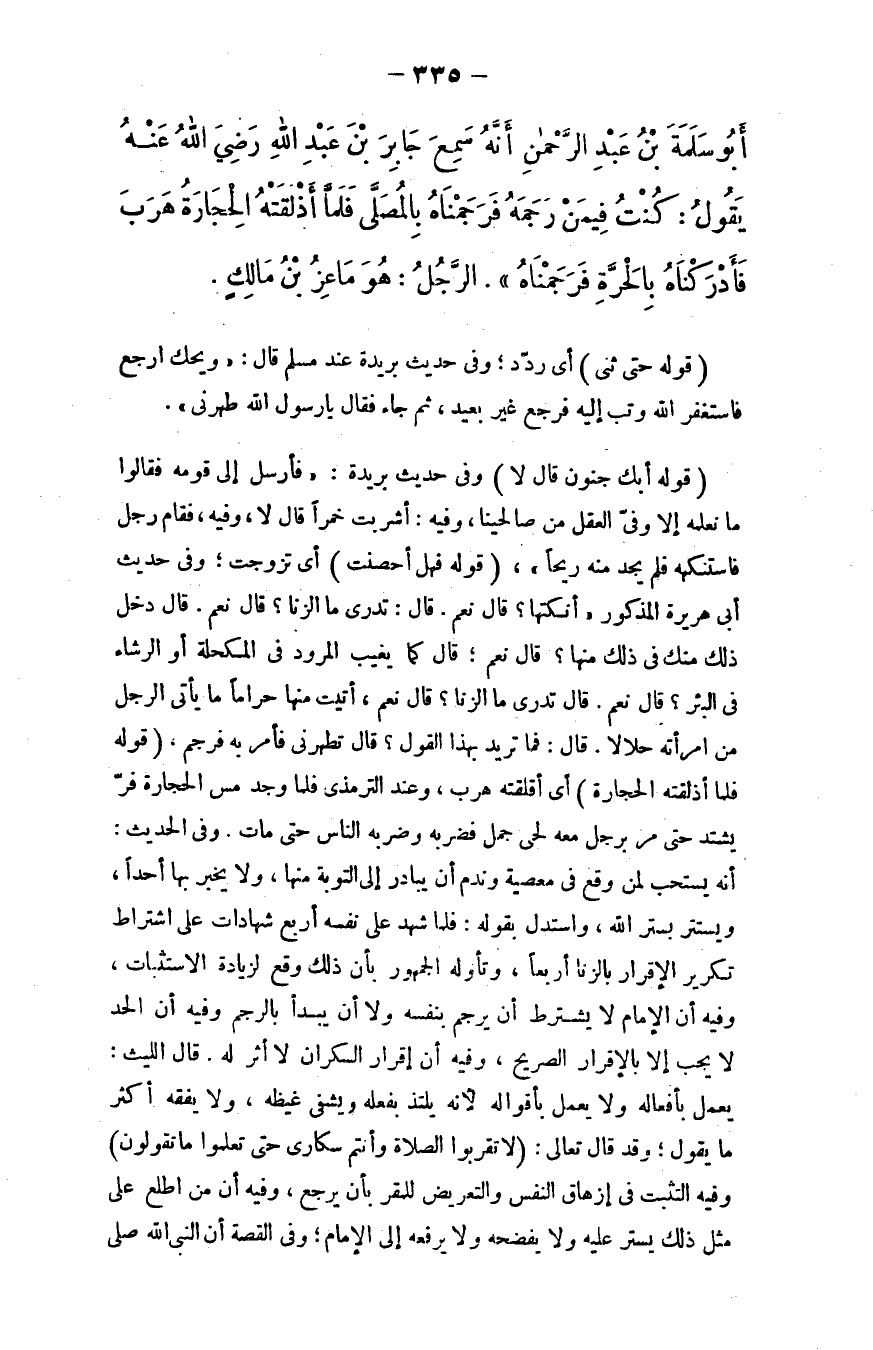 - ٣٣٥ -
أَبُو سَلَمَةَ بْنُ عَبْدِ الرَّحْمٰنِ أَنَّهُ سَمِعَ جَابِرَ بْنَ عَبْدِ اللهِ رَضِيَ اللهُ عَنْهُ
يَقُولُ : كُنْتُ فِيمَنْ رَجَمَهُ فَرَجَمْنَاهُ بِالْمُصَلَّى فَلَمَّا أَذْلَقَتْهُ الْحِجَارَةُ هَرَبَ
فَأَدْرَكْنَاهُ بِالْحَرَّةِ فَرَجَمْنَاهُ » . الرَّجُلُ : هُوَ مَاعِزُ بْنُ مَالِكٍ .
( قوله حتى ثنى ) أى ردّد ؛ وفى حديث بريدة عند مسلم قال : « ويحك ارجع
فاستغفر الله وتب إليه فرجع غير بعيد ، ثم جاء فقال يارسول الله طهرنى » .
( قوله أبك جنون قال لا ) وفى حديث بريدة : « فأرسل إلى قومه فقالوا
ما نعلمه إلا وفىّ العقل من صالحينا ، وفيه : أشربت خمراً قال لا ، وفيه ، فقام رجل
فاستنكهه فلم يجد منه ريحاً » ، ( قوله فهل أحصنت ) أى تزوجت ؛ وفى حديث
أبى هريرة المذكور « أنكتها ؟ قال نعم . قال : تدرى ما الزنا ؟ قال نعم . قال دخل
ذلك منك فى ذلك منها ؟ قال نعم ؛ قال كما يغيب المرود فى المكحلة أو الرشاء
فى البئر ؟ قال نعم . قال تدرى ما الزنا ؟ قال نعم ، أتيت منها حراماً ما يأتى الرجل
من امرأته حلالا . قال : فما تريد بهذا القول ؟ قال تطهرنى فأمر به فرجم ، ( قوله
فلما أذلقته الحجارة ) أى أقلقته هرب ، وعند الترمذى فلما وجد مس الحجارة فرّ
يشتد حتى مر برجل معه لحى جمل فضربه وضربه الناس حتى مات . وفى الحديث :
أنه يستحب لمن وقع فى معصية وندم أن يبادر إلى التوبة منها ، ولا يخبر بها أحداً ،
ويستتر بستر الله ، واستدل بقوله : فلما شهد على نفسه أربع شهادات على اشتراط
تكرير الإقرار بالزنا أربعاً ، وتأوله الجمهور بأن ذلك وقع لزيادة الاستثبات ،
وفيه أن الإمام لا يشترط أن يرجم بنفسه ولا أن يبدأ بالرجم وفيه أن الحد
لا يجب إلا بالإقرار الصريح ، وفيه أن إقرار السكران لا أثر له . قال الليث :
يعمل بأفعاله ولا يعمل بأقواله لأنه يلتذ بفعله ويشفى غيظه ، ولا يفقه أكثر
ما يقول ؛ وقد قال تعالى : (لا تقربوا الصلاة وأنتم سكارى حتى تعلموا ما تقولون)
وفيه التثبت فى إزهاق النفس والتعريض للمقر بأن يرجع ، وفيه أن من اطلع على
مثل ذلك يستر عليه ولا يفضحه ولا يرفعه إلى الإمام ؛ وفى القصة أن النبى الله صلى